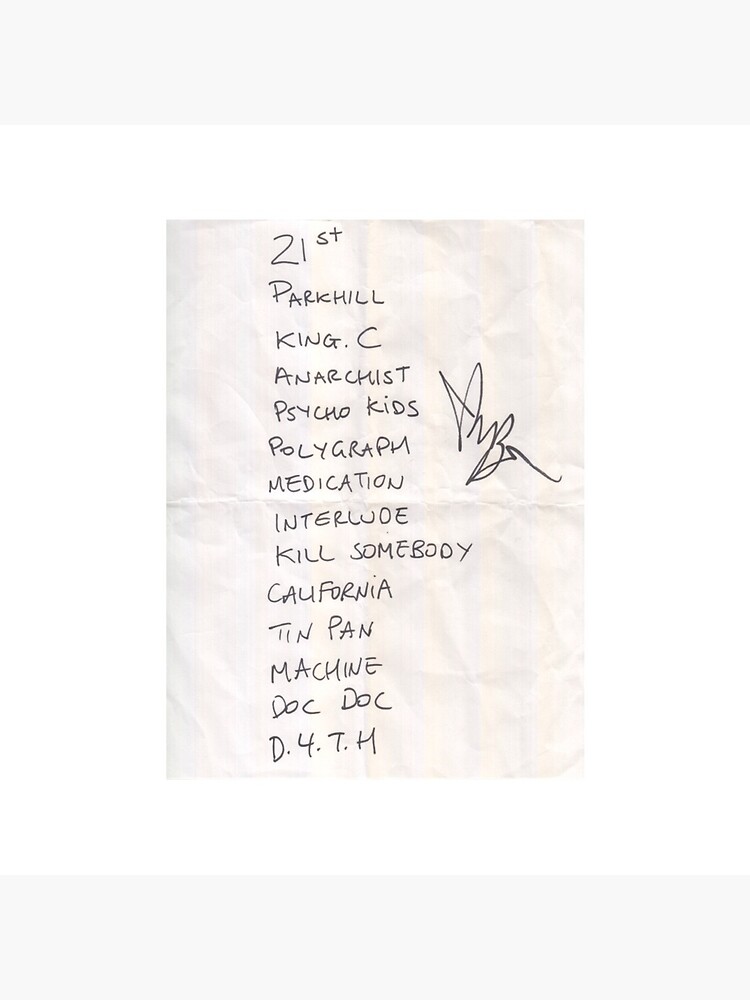 21st
PARKHILL
KING. C
ANARCHIST
PSYCHO KiDS
POLYGRAPH
MEDICATION
INTERLUDE
KILL SOMEBODY
CALIFORNiA
TIN PAN
MACHINE
DOC DOC
D.4.T.H